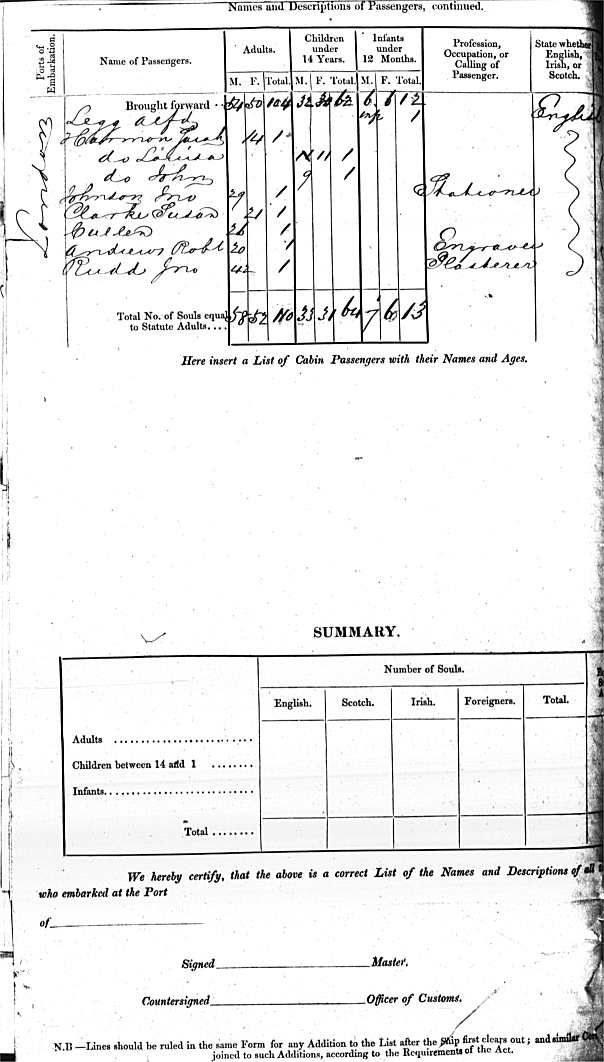 Names and Descriptions of Passengers, continued.
Ports of Embarkation.
Name of Passengers.
Adults.
Children under 14 Years.
Infants under 12 Months.
Profession, Occupation, or Calling of Passenger.
State whether English, Irish, or Scotch.
M. F. Total. M. F. Total. M. F. Total.
Brought forward .. 54 50 104 32 30 62 6 6 12
London
Legg Alfd inf 1 English
Harmon Sarah 14 1
do Louisa 11 1
do John 9 1
Johnson Jno 29 1 Stationer
Clarke Susan 21 1
Cullen 26 1
Andrews Robt 20 1 Engraver
Rudd Jno 42 1 Plasterer
Total No. of Souls equal to Statute Adults.... 58 52 110 33 31 64 7 6 13
Here insert a List of Cabin Passengers with their Names and Ages.
SUMMARY.
Number of Souls.
English. Scotch. Irish. Foreigners. Total.
Adults
Children between 14 and 1
Infants
Total
We hereby certify, that the above is a correct List of the Names and Descriptions of all
who embarked at the Port
of
Signed Master.
Countersigned Officer of Customs.
N.B —Lines should be ruled in the same Form for any Addition to the List after the Ship first clears out; and similar
joined to such Additions, according to the Requirements of the Act.